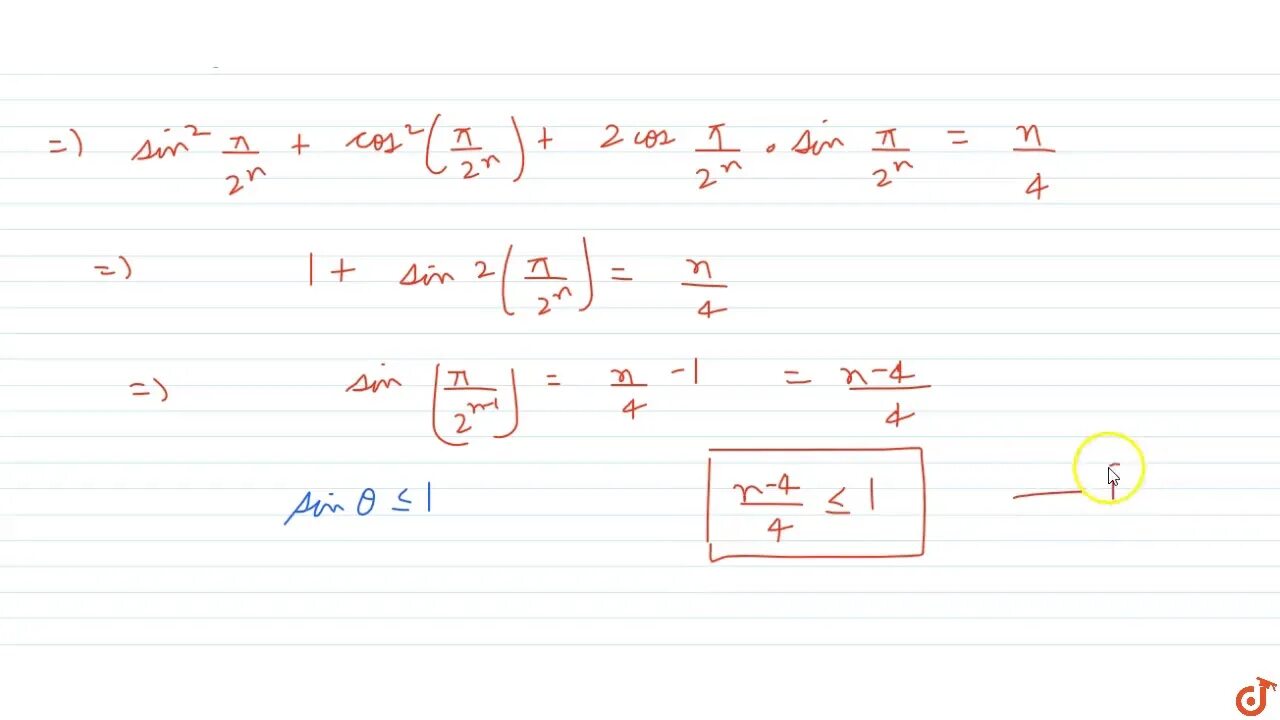 =) sin² π/2ⁿ + cos² (π/2ⁿ) + 2 cos π/2ⁿ . sin π/2ⁿ = n/4
=) 1 + sin 2 (π/2ⁿ) = n/4
=) sin (π/2ⁿ⁻¹) = n/4 -1 = n-4/4
sin θ ≤ 1 n-4/4 ≤ 1 —